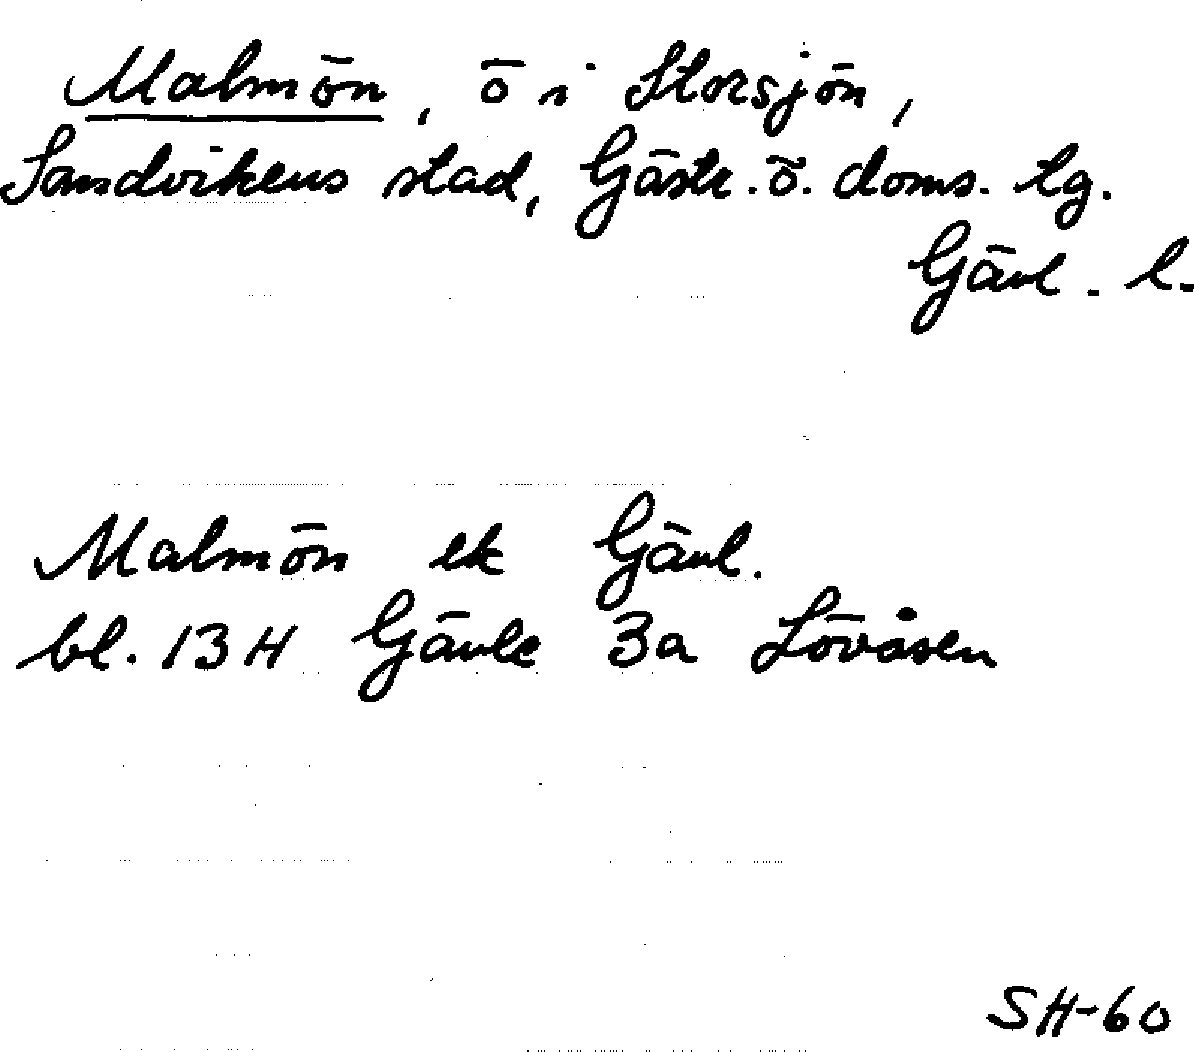 Malmön, ö i Storsjön,
Sandvikens stad, Gästr. ö. doms. tg.
Gävl. l.
Malmön ek Gävl.
bl. 13H Gävle 3a Lövåsen
SH-60